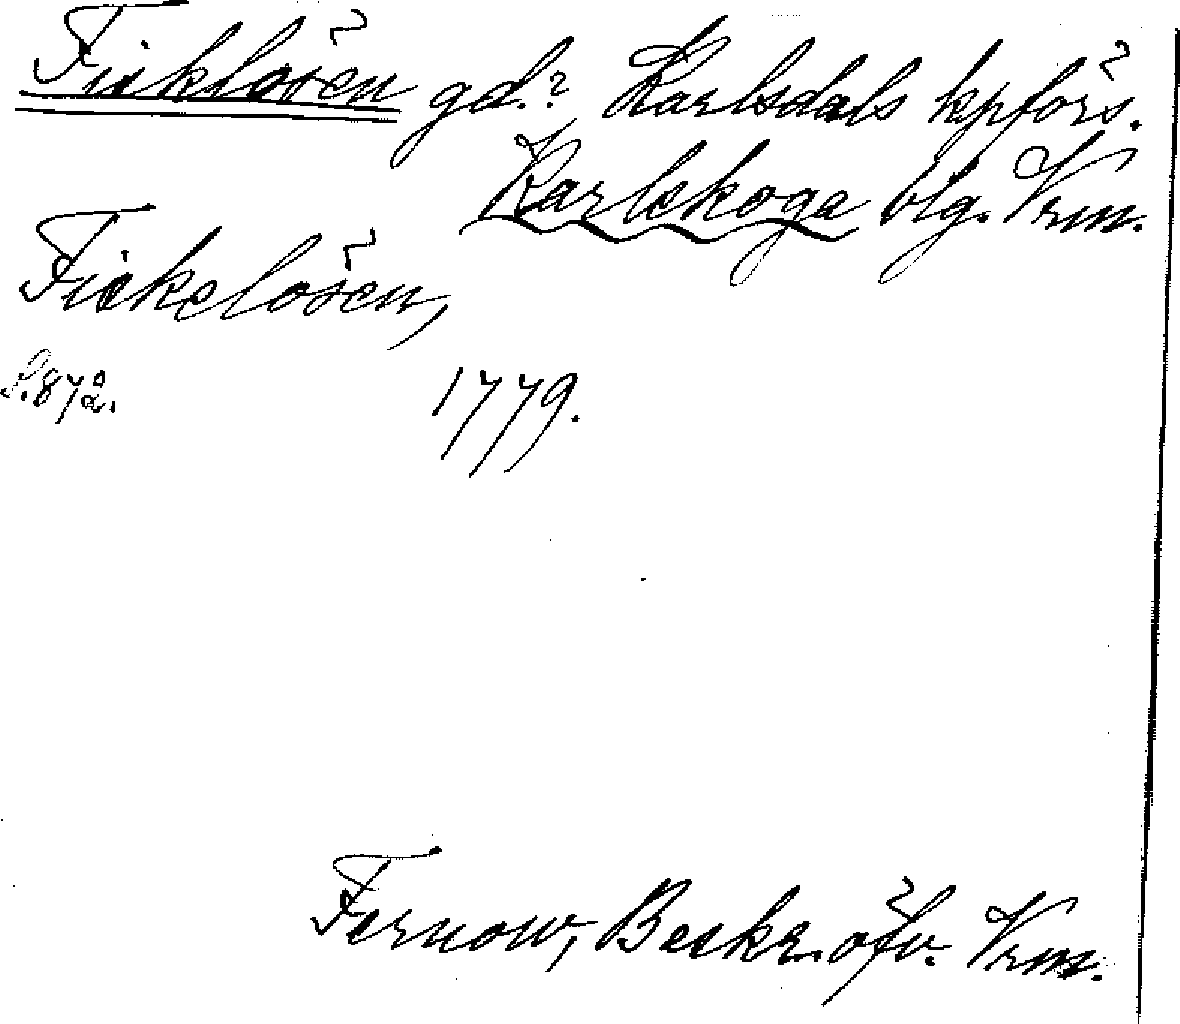 Fisklösen gd.? Karlsdals kpförs.
Karlskoga blg. Vrm.
Fiskelösen,
S. 872. 1779.
Fernow, Beskr. öfv. Vrm.